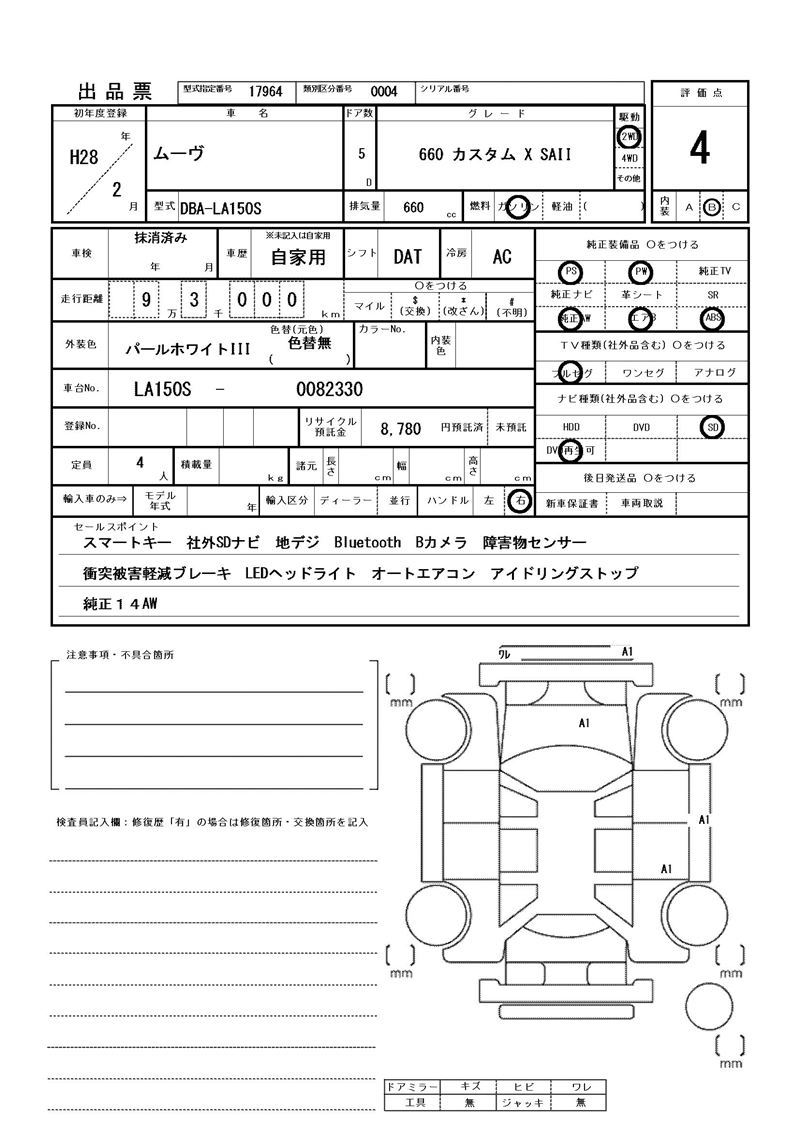 出品票 型式指定番号 17964 類別区分番号 0004 シリアル番号
評価点
4
内装 A B C
初年度登録 車名 ドア数 グレード 駆動
H28 年 2 月
ムーヴ 5 D 660 カスタム X SAII
2WD
4WD
その他
型式 DBA-LA150S 排気量 660 cc 燃料 ガソリン 軽油 ( )
車検 抹消済み 年 月 車歴 ※未記入は自家用 自家用 シフト DAT 冷房 AC
走行距離 9 万 3 千 0 0 0 km
○をつける
マイル $(交換) *(改ざん) #(不明)
外装色 パールホワイトIII 色替(元色) 色替無 ( ) カラーNo. 内装色
車台No. LA150S - 0082330
登録No. リサイクル預託金 8,780 円預託済 未預託
定員 4 人 積載量 kg 諸元 長さ cm 幅 cm 高さ cm
輸入車のみ⇒ モデル年式 年 輸入区分 ディーラー 並行 ハンドル 左 右
純正装備品 ○をつける
PS PW 純正TV
純正ナビ 革シート SR
純正AW エアB ABS
TV種類(社外品含む) ○をつける
フルセグ ワンセグ アナログ
ナビ種類(社外品含む) ○をつける
HDD DVD SD
DVD再生可
後日発送品 ○をつける
新車保証書 車両取説
セールスポイント
スマートキー 社外SDナビ 地デジ Bluetooth Bカメラ 障害物センサー
衝突被害軽減ブレーキ LEDヘッドライト オートエアコン アイドリングストップ
純正14AW
注意事項・不具合箇所
検査員記入欄:修復歴「有」の場合は修復箇所・交換箇所を記入
ワレ A1
mm mm
A1
A1
A1
mm mm
mm
ドアミラー キズ ヒビ ワレ
工具 無 ジャッキ 無